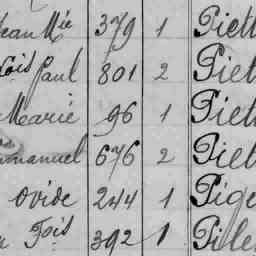 Jean Mie 379 1 Piett
çois Paul 801 2 Piet
Marie 96 1 Piet
Emmanuel 676 2 Piet
Ovide 244 1 Pige
Fois 392 1 Pile